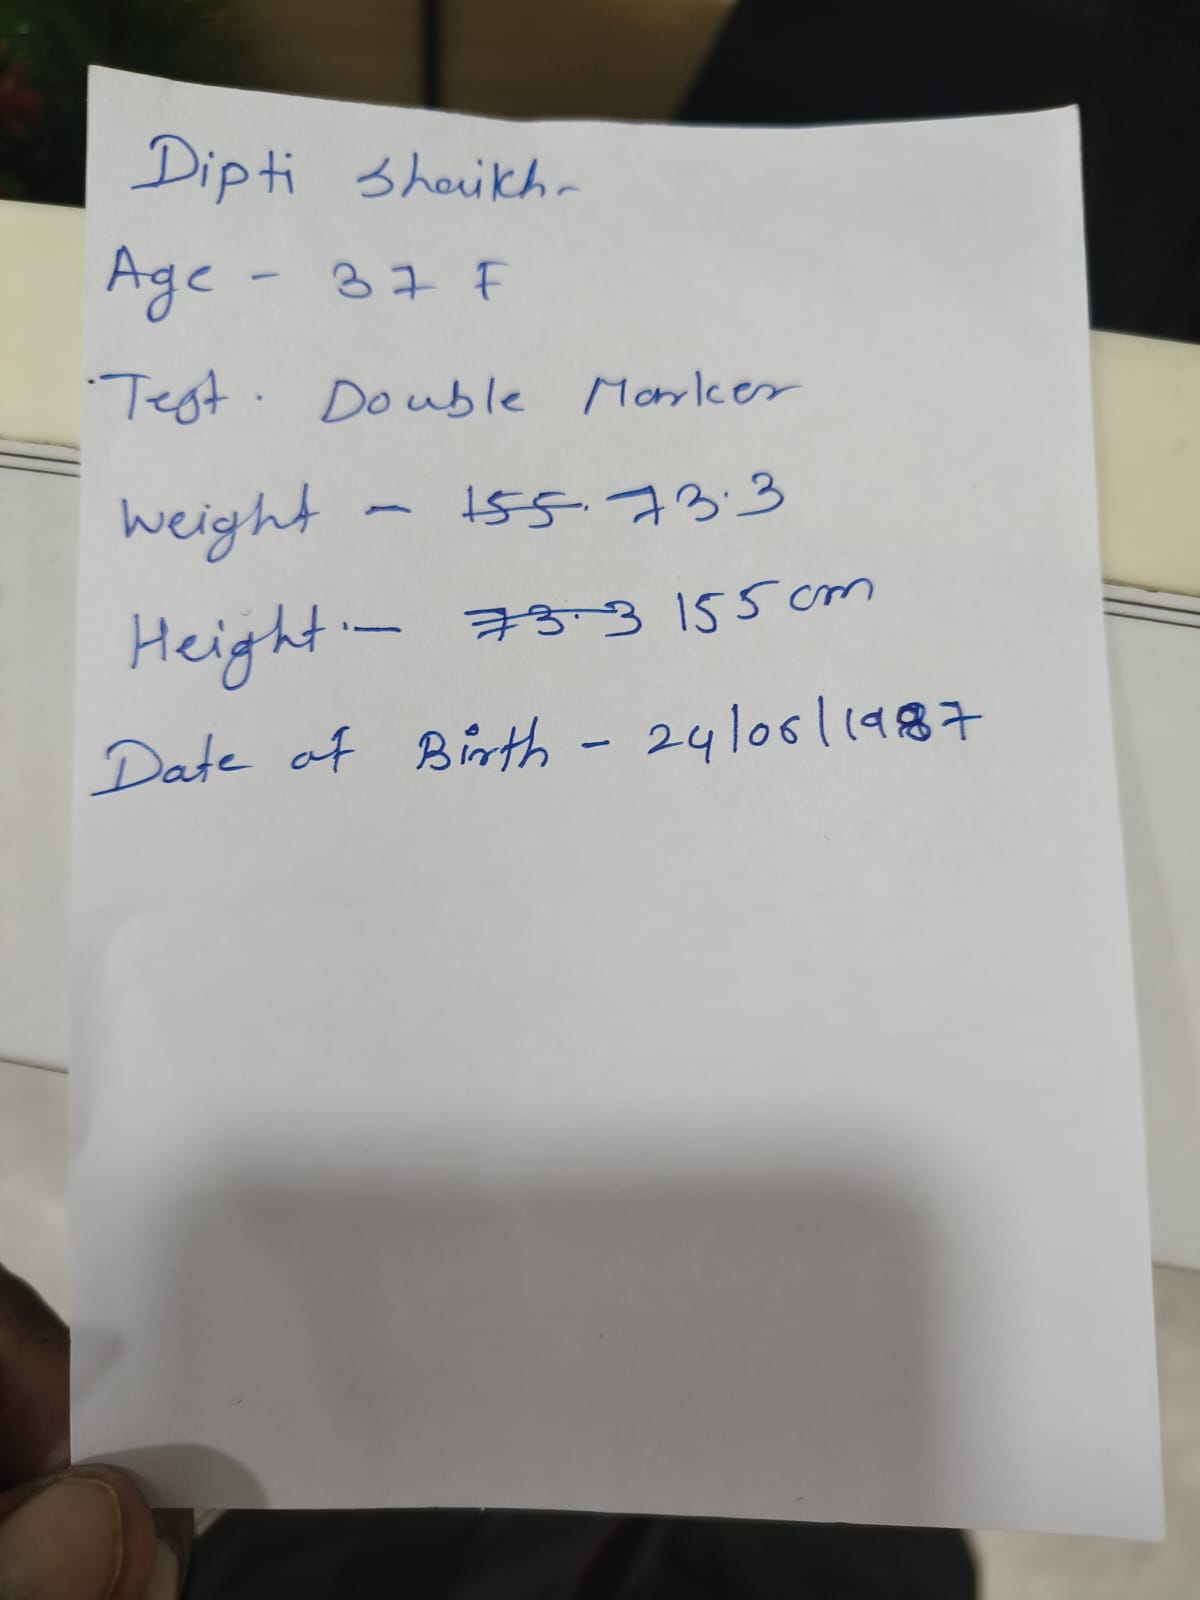 Dipti Shaikh-
Age - 37 F
Test. Double Marker
Weight - 155. 73.3
Height.- 73.3 155 cm
Date of Birth - 24/06/1987